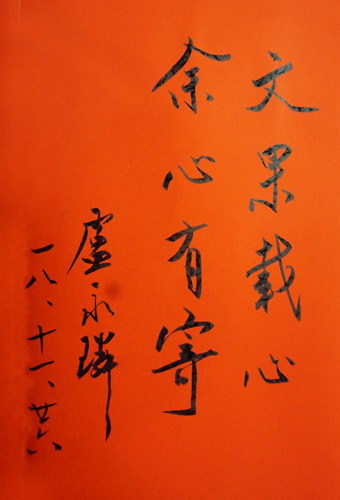 文果載心
余心有寄
盧永璘
一八、十一、廿六